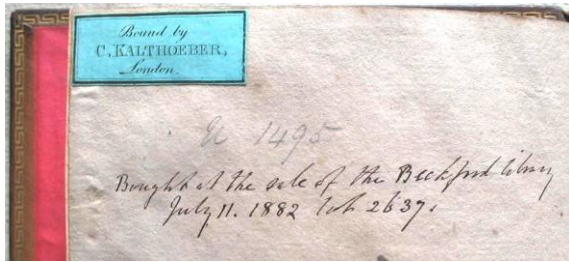 Bound by
C. KALTHOEBER,
London.
1495
Bought at the sale of the Beckford library
July 11. 1882 lot 2637.